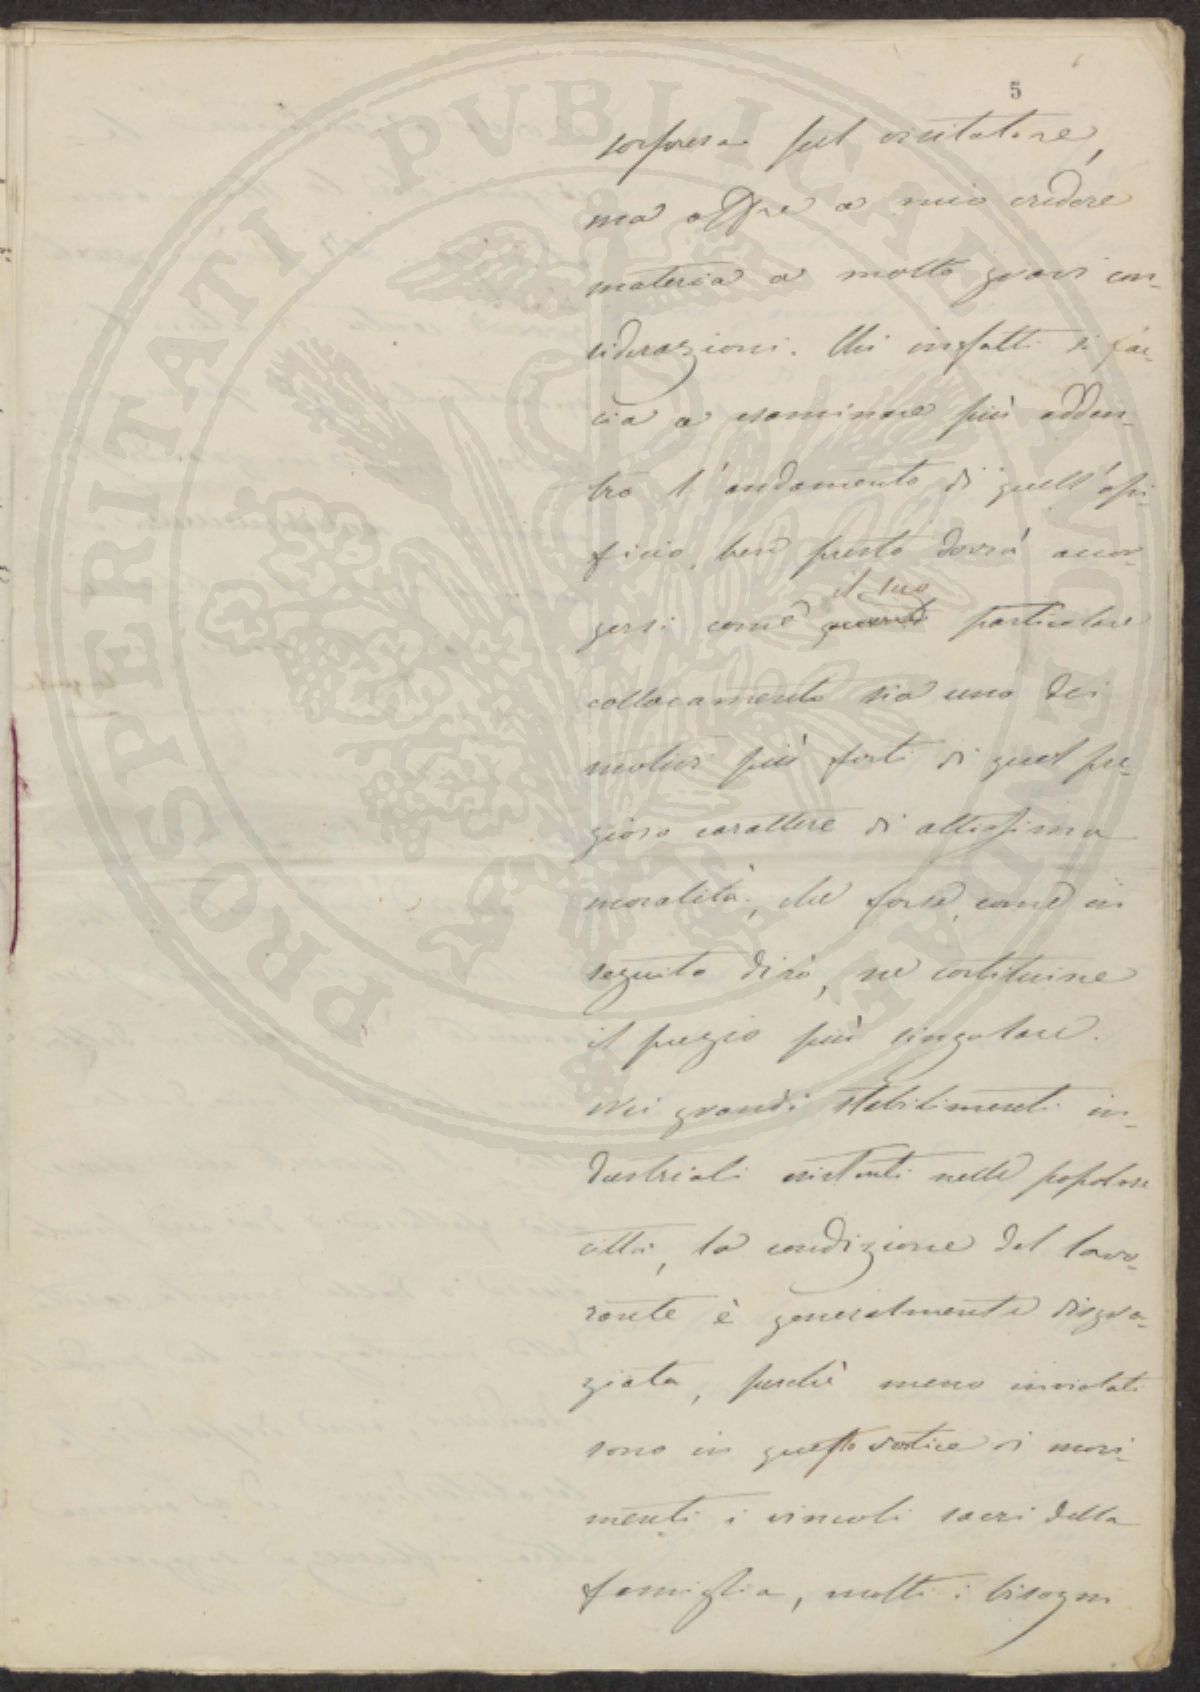 5
sorpresa pel visitatore,
ma offre a mio credere
materia a molto gravi con-
siderazioni. Chi infatti si fac-
cia a esaminare più adden-
tro l'andamento di quell'opi-
ficio, ben presto dovrà accor-
gersi come il suo particolare
collocamento sia uno dei
motivi più forti di quel pre-
gioso carattere di altissima
moralità, che forse, come in
seguito dirò, ne costituisce
il pregio più singolare.
Nei grandi stabilimenti in-
dustriali esistenti nelle popolose
città, la condizione del lavo-
rante è generalmente disgra-
ziata, perchè meno inviolati
sono in questo vortice di movi-
menti i vincoli sacri della
famiglia, molti i bisogni
PROSPERITATI PUBLICAE AUGENDAE